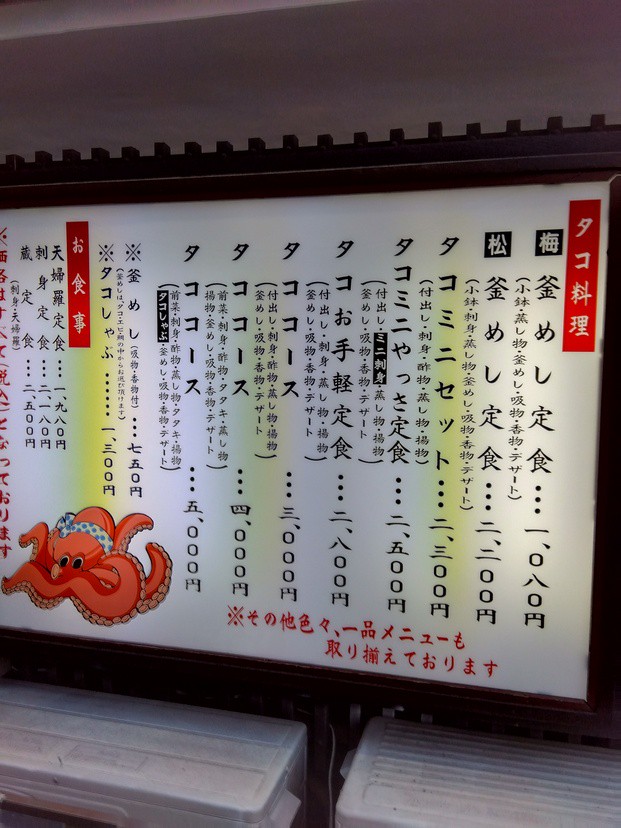 タコ料理
梅 釜めし定食…一、〇八〇円
(小鉢・蒸し物・釜めし・吸物・香物・デザート)
松 釜めし定食…二、二〇〇円
(小鉢・刺身・酢物・蒸し物・釜めし・吸物・香物・デザート)
タコミニセット…二、三〇〇円
(付出し・刺身・酢物・蒸し物・揚物)
タコミニやっさ定食…二、五〇〇円
(付出し・ミニ刺身・蒸し物
釜めし・吸物・香物・デザート)
タコお手軽定食…二、八〇〇円
(付出し・刺身・酢物・蒸し物・揚物
釜めし・吸物・香物・デザート)
タココース…三、〇〇〇円
(付出し・刺身・酢物・蒸し物・揚物
釜めし・吸物・香物・デザート)
タココース…四、〇〇〇円
(前菜・刺身・酢物・タタキ・蒸し物
揚物・釜めし・吸物・香物・デザート)
タココース…五、〇〇〇円
(前菜・刺身・酢物・蒸し物・タタキ・揚物
タコしゃぶ・釜めし・吸物・香物・デザート)
※釜めし(吸物・香物付)…七五〇円
(釜めしは、タコ・エビ・鯛の中からお選び頂けます)
※タコしゃぶ……一、三〇〇円
お食事
天婦羅定食…一、九八〇円
刺身定食…二、一八〇円
蔵定食…二、五〇〇円
(刺身・天婦羅)
※価格はすべて(税込)となっております
※その他色々、一品メニューも
取り揃えております